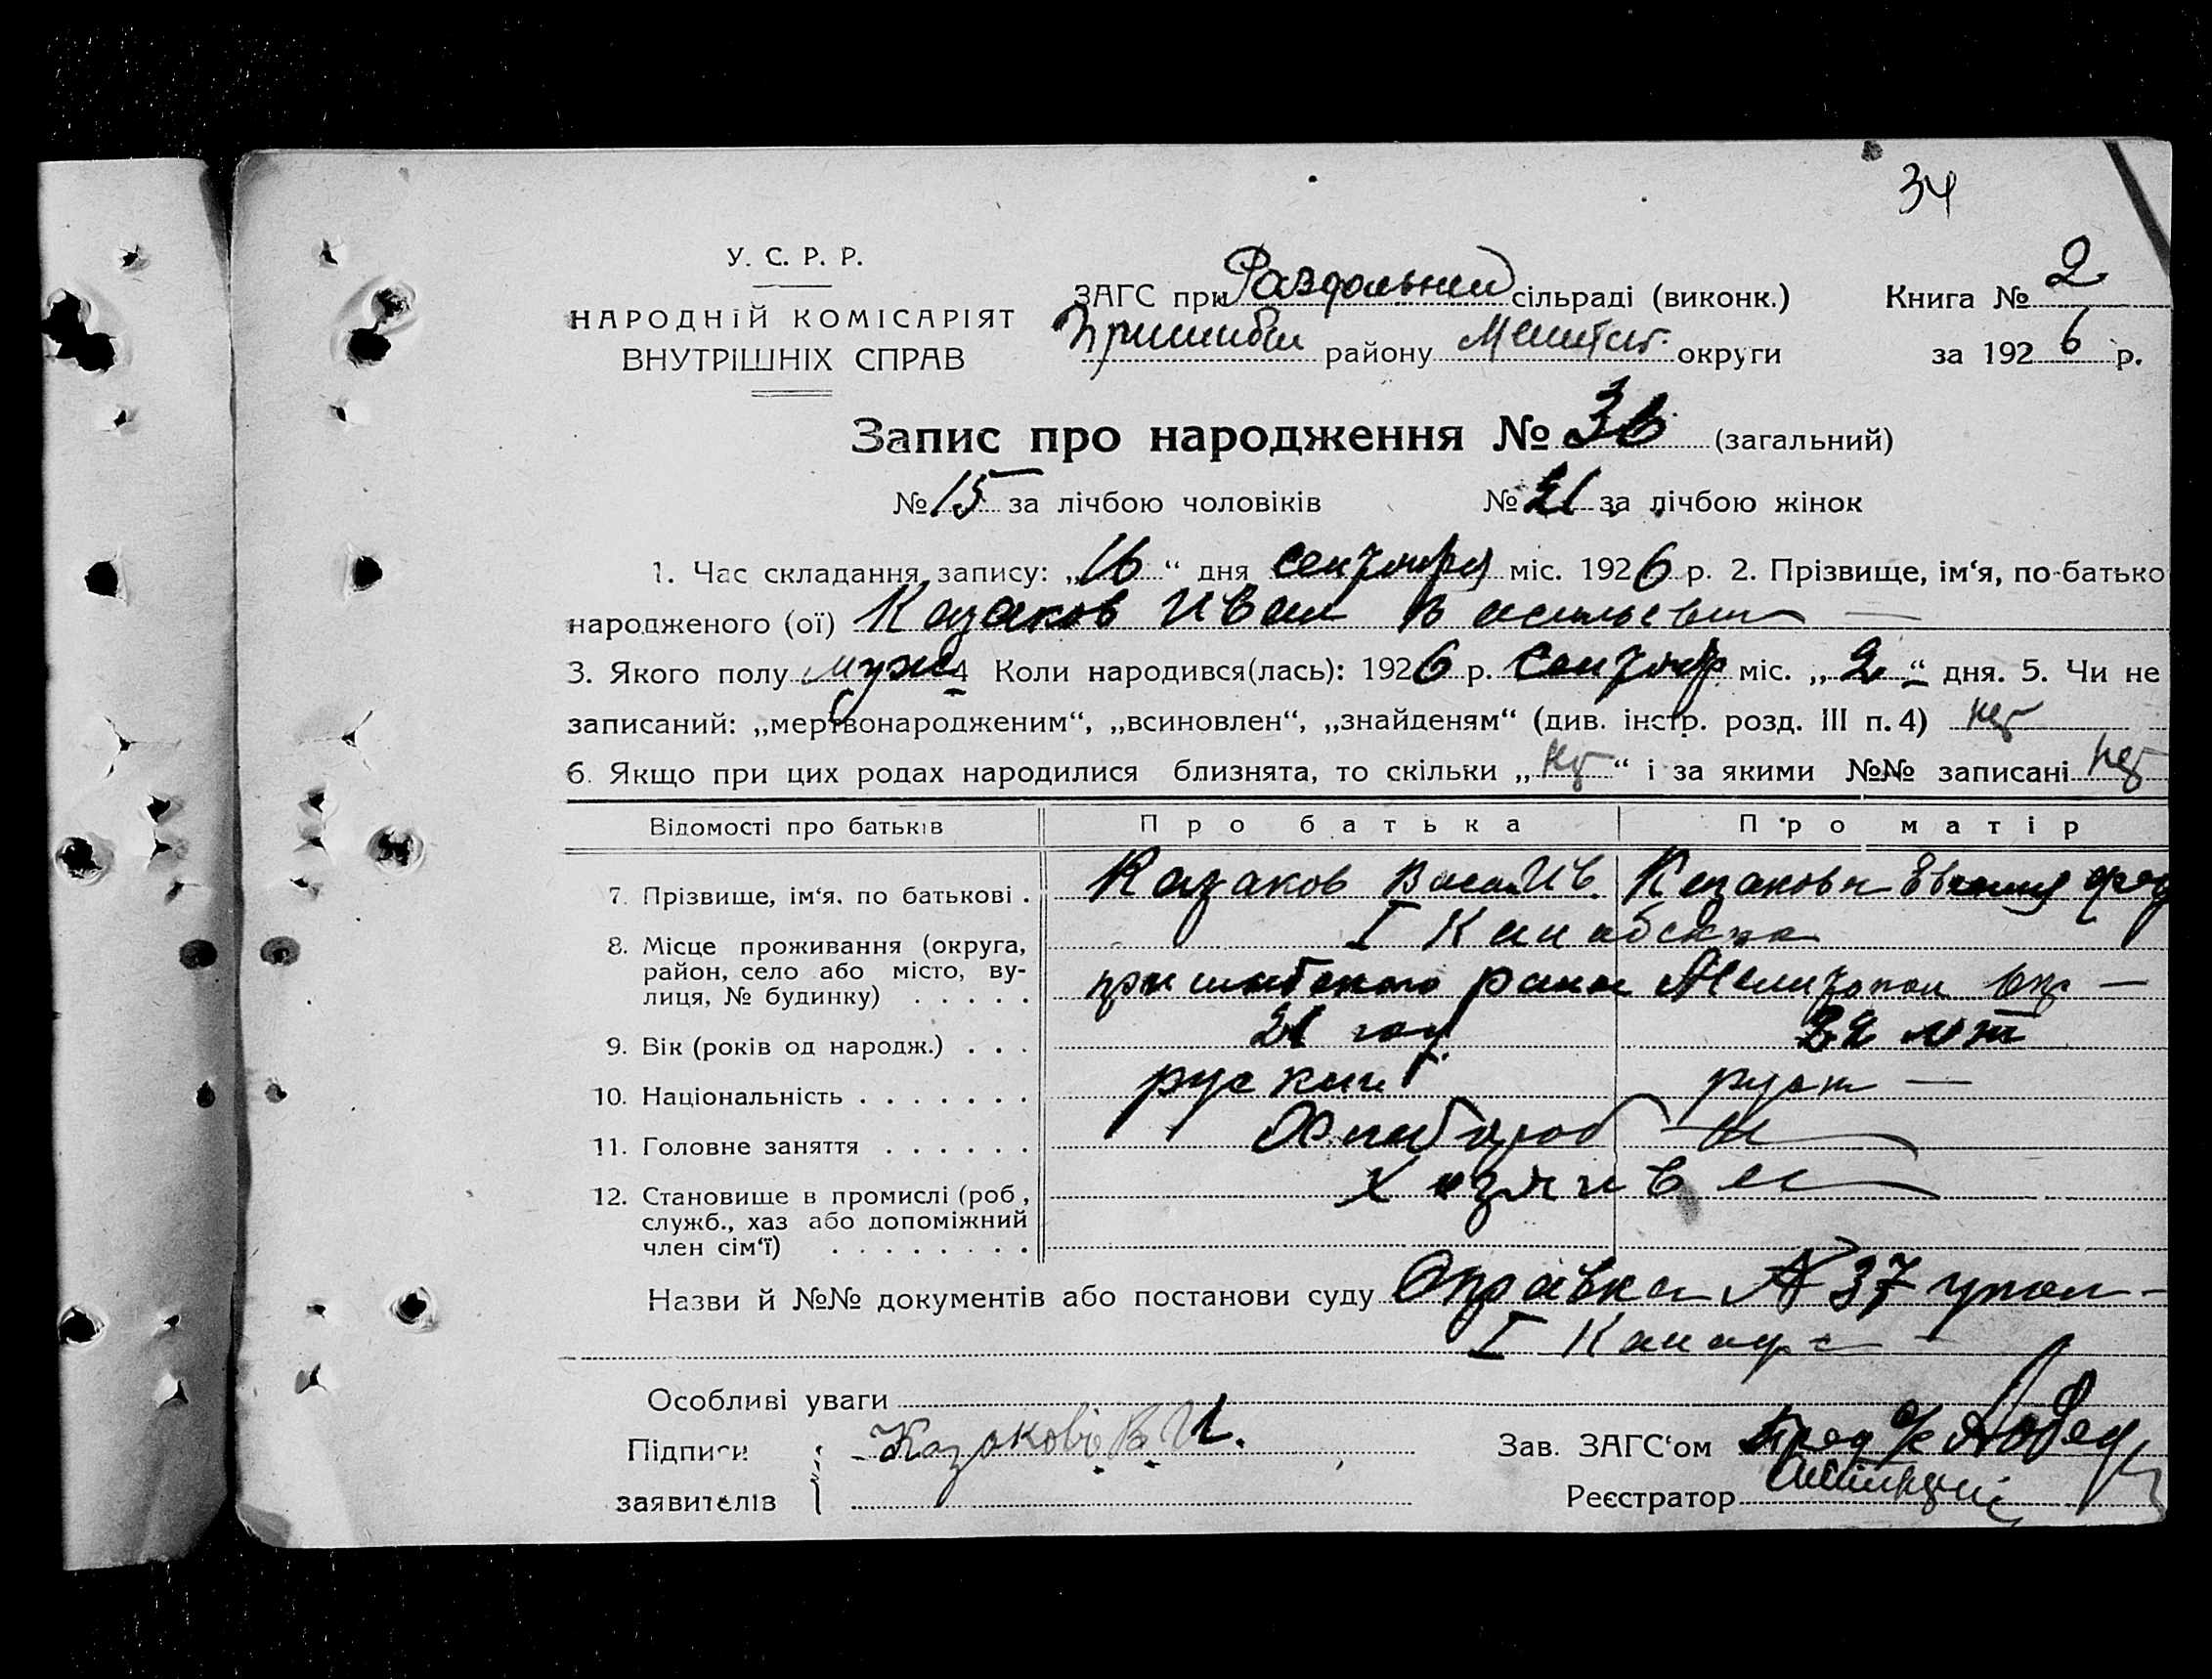 34
У. С. Р. Р.
НАРОДНІЙ КОМІСАРІЯТ
ВНУТРІШНІХ СПРАВ
ЗАГС при Раздольней сільраді (виконк.)
Книга № 2
району округи
за 1926 р.
Запис про народження № 36 (загальний)
№ 15 за лічбою чоловіків № 21 за лічбою жінок
1. Час складання запису: „16“ дня сентября міс. 1926 р. 2. Прізвище, ім‘я, по-батько
народженого (ої) Казаков Иван Васильевич
3. Якого полу муж 4 Коли народився(лась): 1926 р. сентябр міс. „2“ дня. 5. Чи не
записаний: „мертвонародженим“, „всиновлен“, „знайденям“ (див. інстр. розд. III п. 4) нет
6. Якщо при цих родах народилися близнята, то скільки „нет“ і за якими №№ записані нет
Відомості про батьків Про батька Про матір
7. Прізвище, ім‘я, по батькові . Казаков Васил Ив. Казакова
8. Місце проживання (округа,
район, село або місто, ву-
лиця, № будинку) . . . . .
I
пришибского Мелитопол окр —
9. Вік (років од народж.) . . . 21 год лет
10. Національність . . . . . . . руский руск —
11. Головне заняття . . . . . . Хлебороб —
12. Становище в промислі (роб,
служб., хаз або допоміжний
член сім‘ї) . . . . . . . .
Назви й №№ документів або постанови суду Справка № 37
I
Особливі уваги
Підписи Казаков В. И.
заявителів
Зав. ЗАГС‘ом
Реєстратор